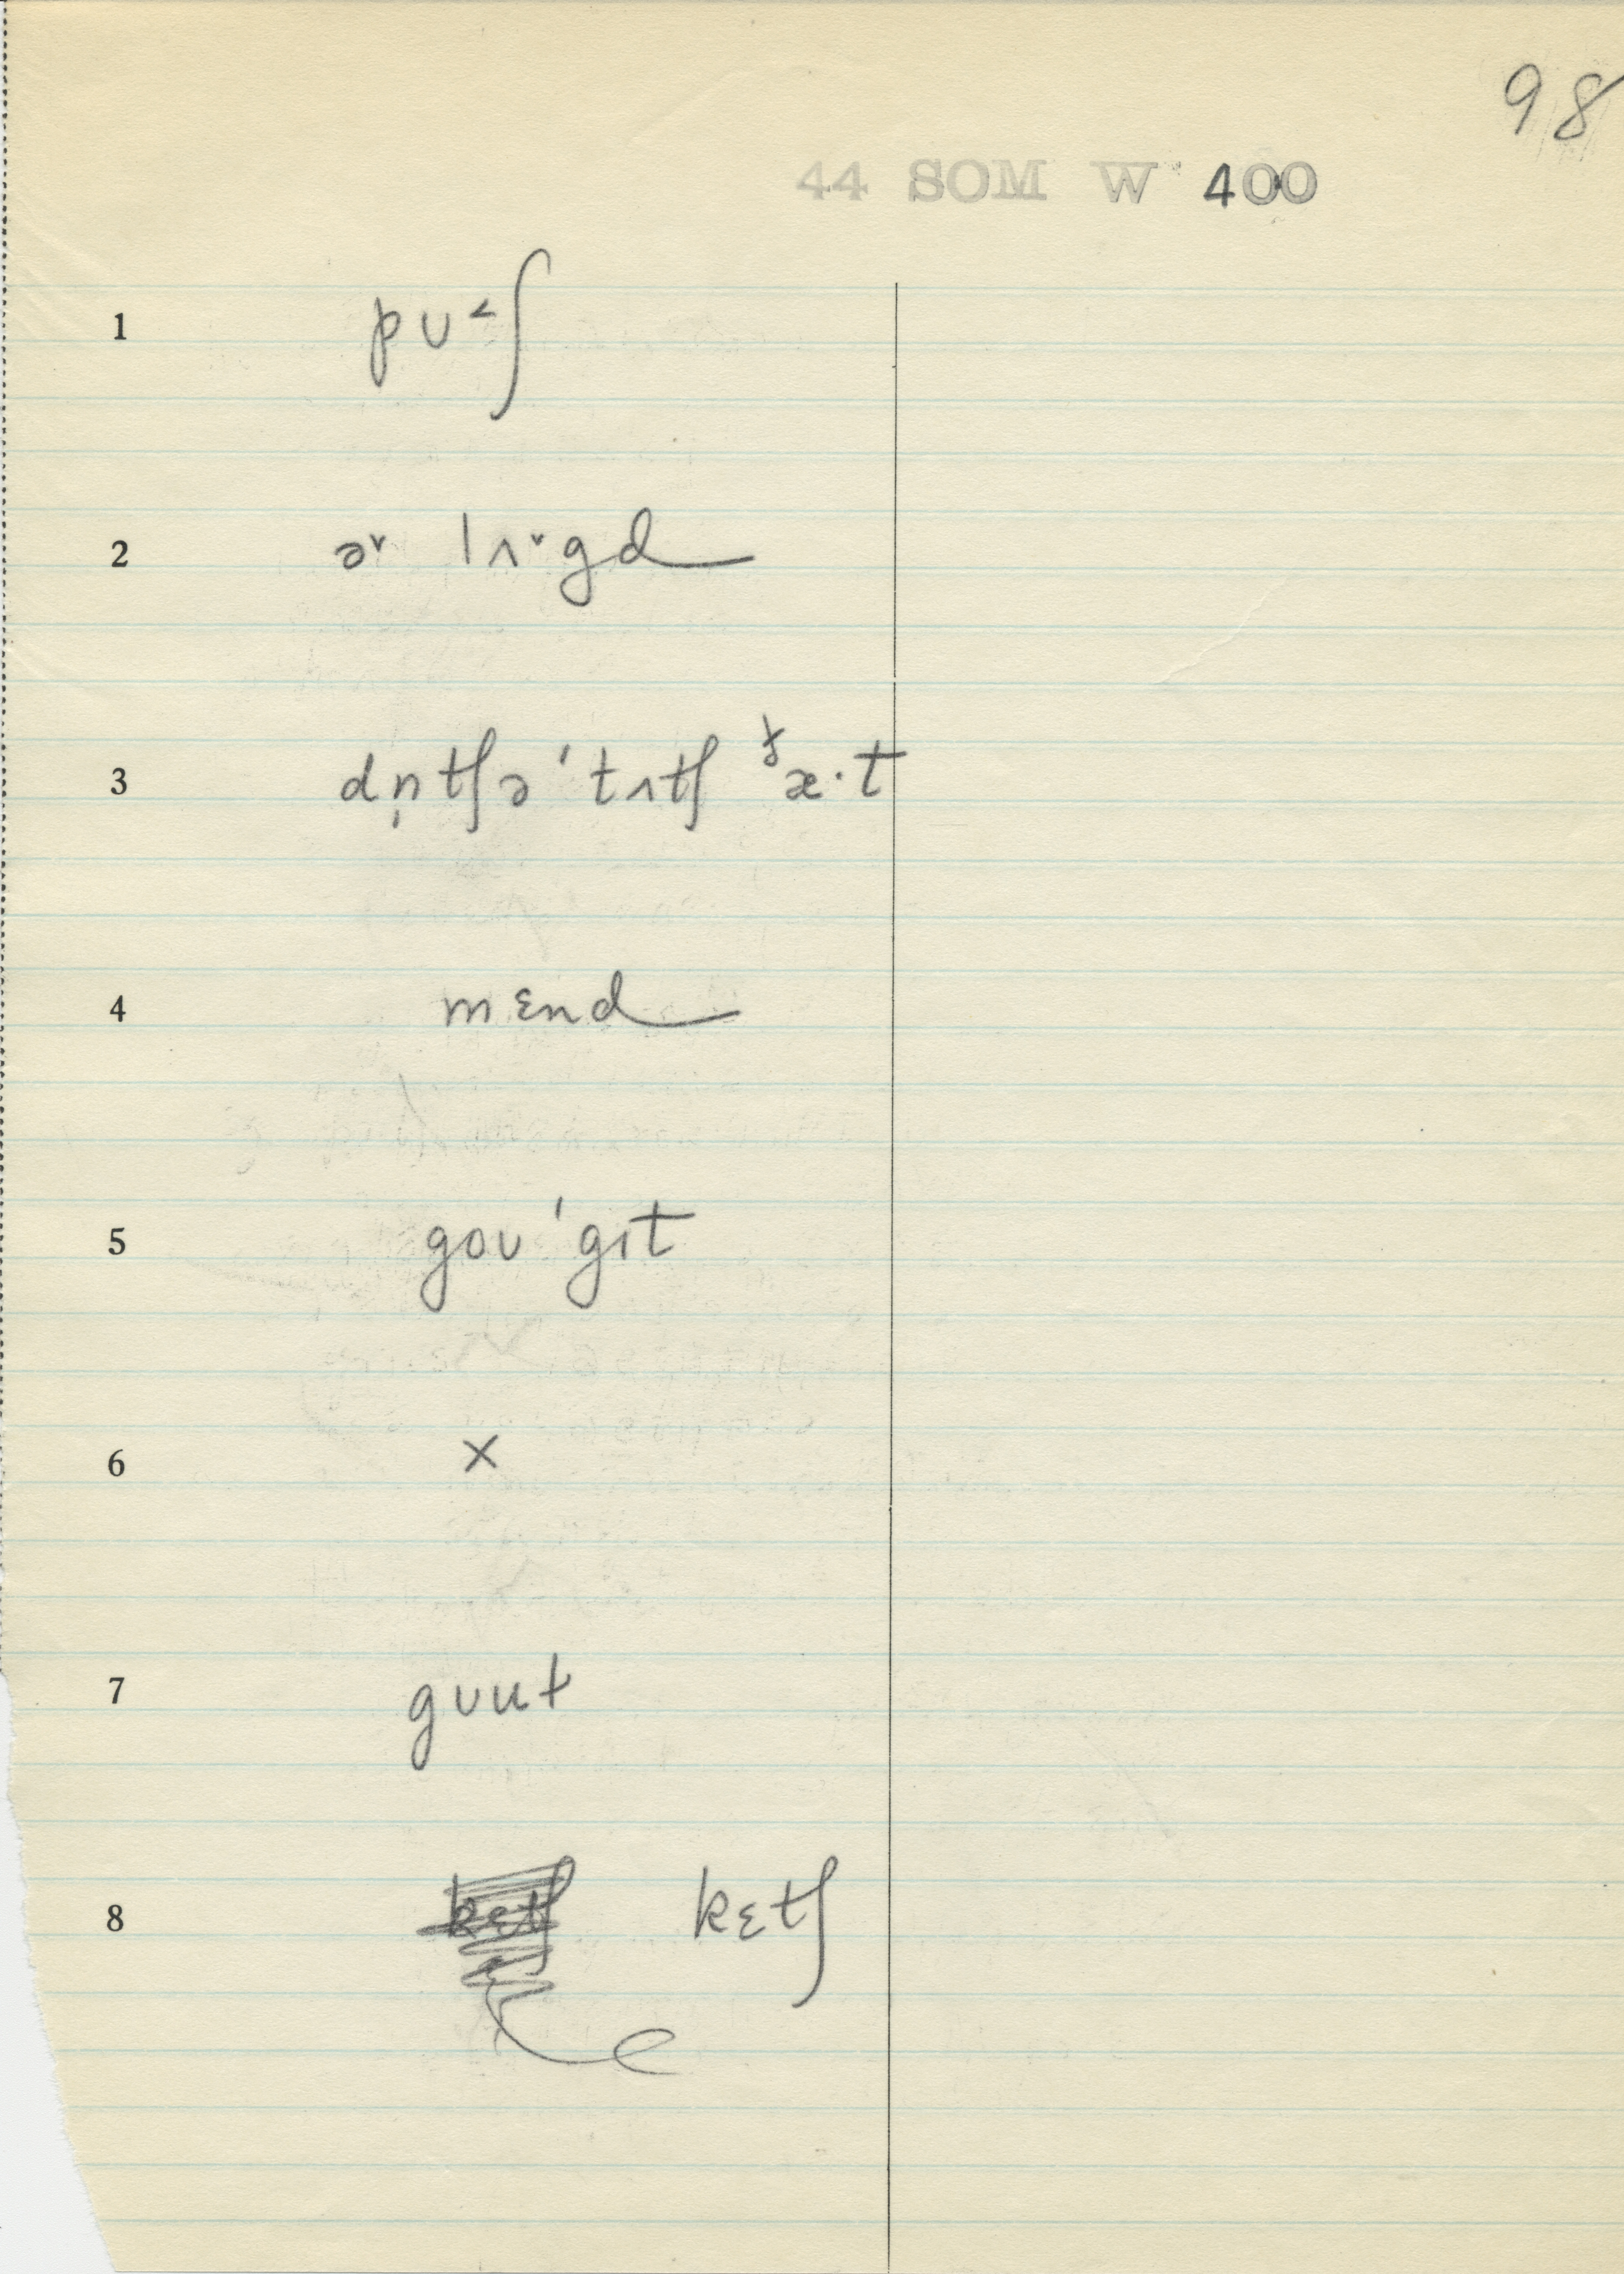 98
44 SOM W 400
1 pʊ˂ʃ
2 ə˅ lʌ˅gd
3 dn̩tʃə ˈtʌtʃ ðæ·t
4 mɛnd
5 goʊ ˈgɪt
6 ×
7 gʊut
8 kɛtʃ